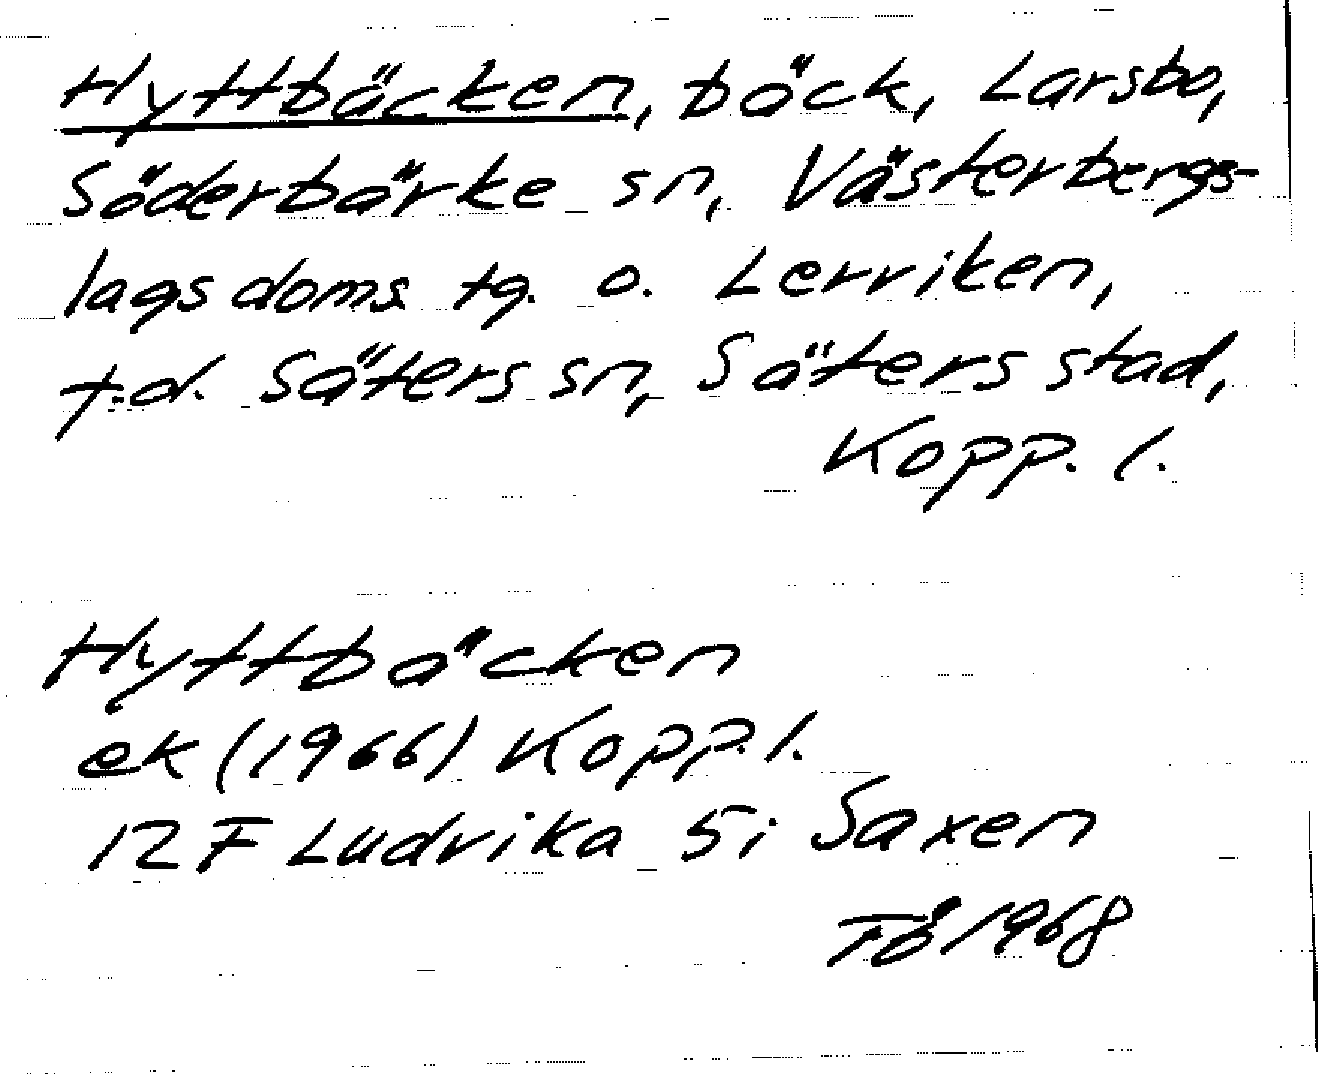 Hyttbäcken, bäck, Larsbo,
Söderbärke sn, Västerbergs-
lagsdoms tg. o. Lerviken,
t.d. Säters sn, Säters stad,
Kopp. l.
Hyttbäcken
ek (1966) Kopp. l.
12 F Ludvika 5i Saxen
FÖ 1968